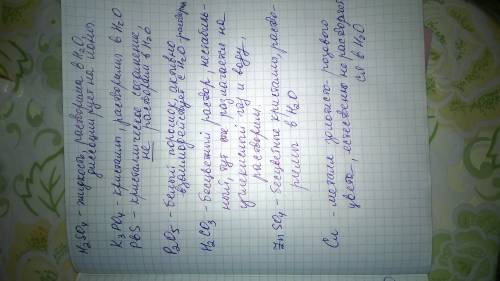 H₂SO₄ - жидкость, растворима в H₂O,
диссоциирует на ионы
K₃PO₄ - кристалл, растворим в H₂O
PbS - кристаллическое соединение,
не растворим в H₂O
P₂O₅ - белый порошок, активно
взаимодействует с H₂O, раств
H₂CO₃ - бесцветный раствор, нестабиль-
ный, тут же разлагается на
углекислый газ и воду,
растворим,
ZnSO₄ - бесцветные кристаллы, раство-
римы в H₂O
Cu - металл золотисто розового
цвета, естественно не растворяет
ся в H₂O